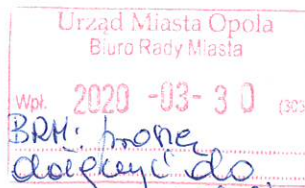 Urząd Miasta Opola
Biuro Rady Miasta
Wpł. 2020 -03- 30 (303
BRM: proszę
dołączyć do